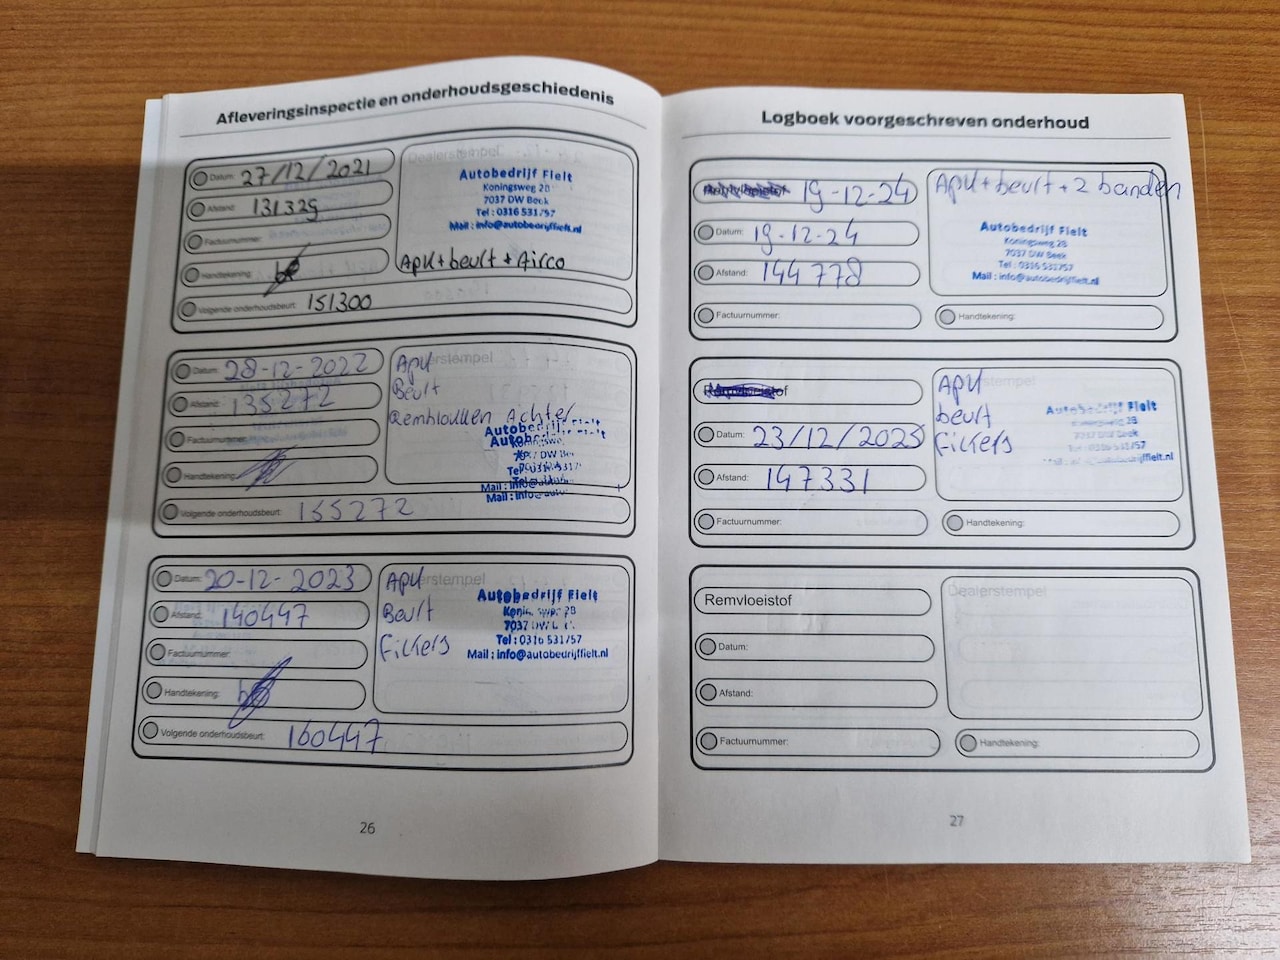 Afleveringsinspectie en onderhoudsgeschiedenis
Datum: 27/12/2021
Afstand: 131329
Factuurnummer:
Handtekening:
Volgende onderhoudsbeurt: 151300
Dealerstempel
Autobedrijf Fielt
Koningsweg 2B
7037 DW Beek
Tel : 0316 531757
Mail : info@autobedrijffielt.nl
Apk + beurt + Airco
Datum: 28-12-2022
Afstand: 135272
Factuurnummer:
Handtekening:
Volgende onderhoudsbeurt: 155272
Dealerstempel
Apk
Beurt
Remblokken Achter
Autobedrijf Fielt
Autobedrijf Fielt
Datum: 20-12-2023
Afstand: 140447
Factuurnummer:
Handtekening:
Volgende onderhoudsbeurt: 160447
Dealerstempel
Apk
Beurt
Fickers
Autobedrijf Fielt
7037
Tel : 0316 531757
Mail : info@autobedrijffielt.nl
26
Logboek voorgeschreven onderhoud
19-12-24
Datum: 19-12-24
Afstand: 144778
Factuurnummer:
Apk + beurt + 2 banden
Autobedrijf Fielt
Koningsweg 2B
7037 DW Beek
Tel : 0316 531757
Mail : info@autobedrijffielt.nl
Handtekening:
Remvloeistof
Datum: 23/12/2025
Afstand: 147331
Factuurnummer:
Dealerstempel
Apk
beurt
Fickers
Autobedrijf Fielt
Koningsweg 2B
7037 DW Beek
Handtekening:
Remvloeistof
Datum:
Afstand:
Factuurnummer:
Dealerstempel
Handtekening:
27